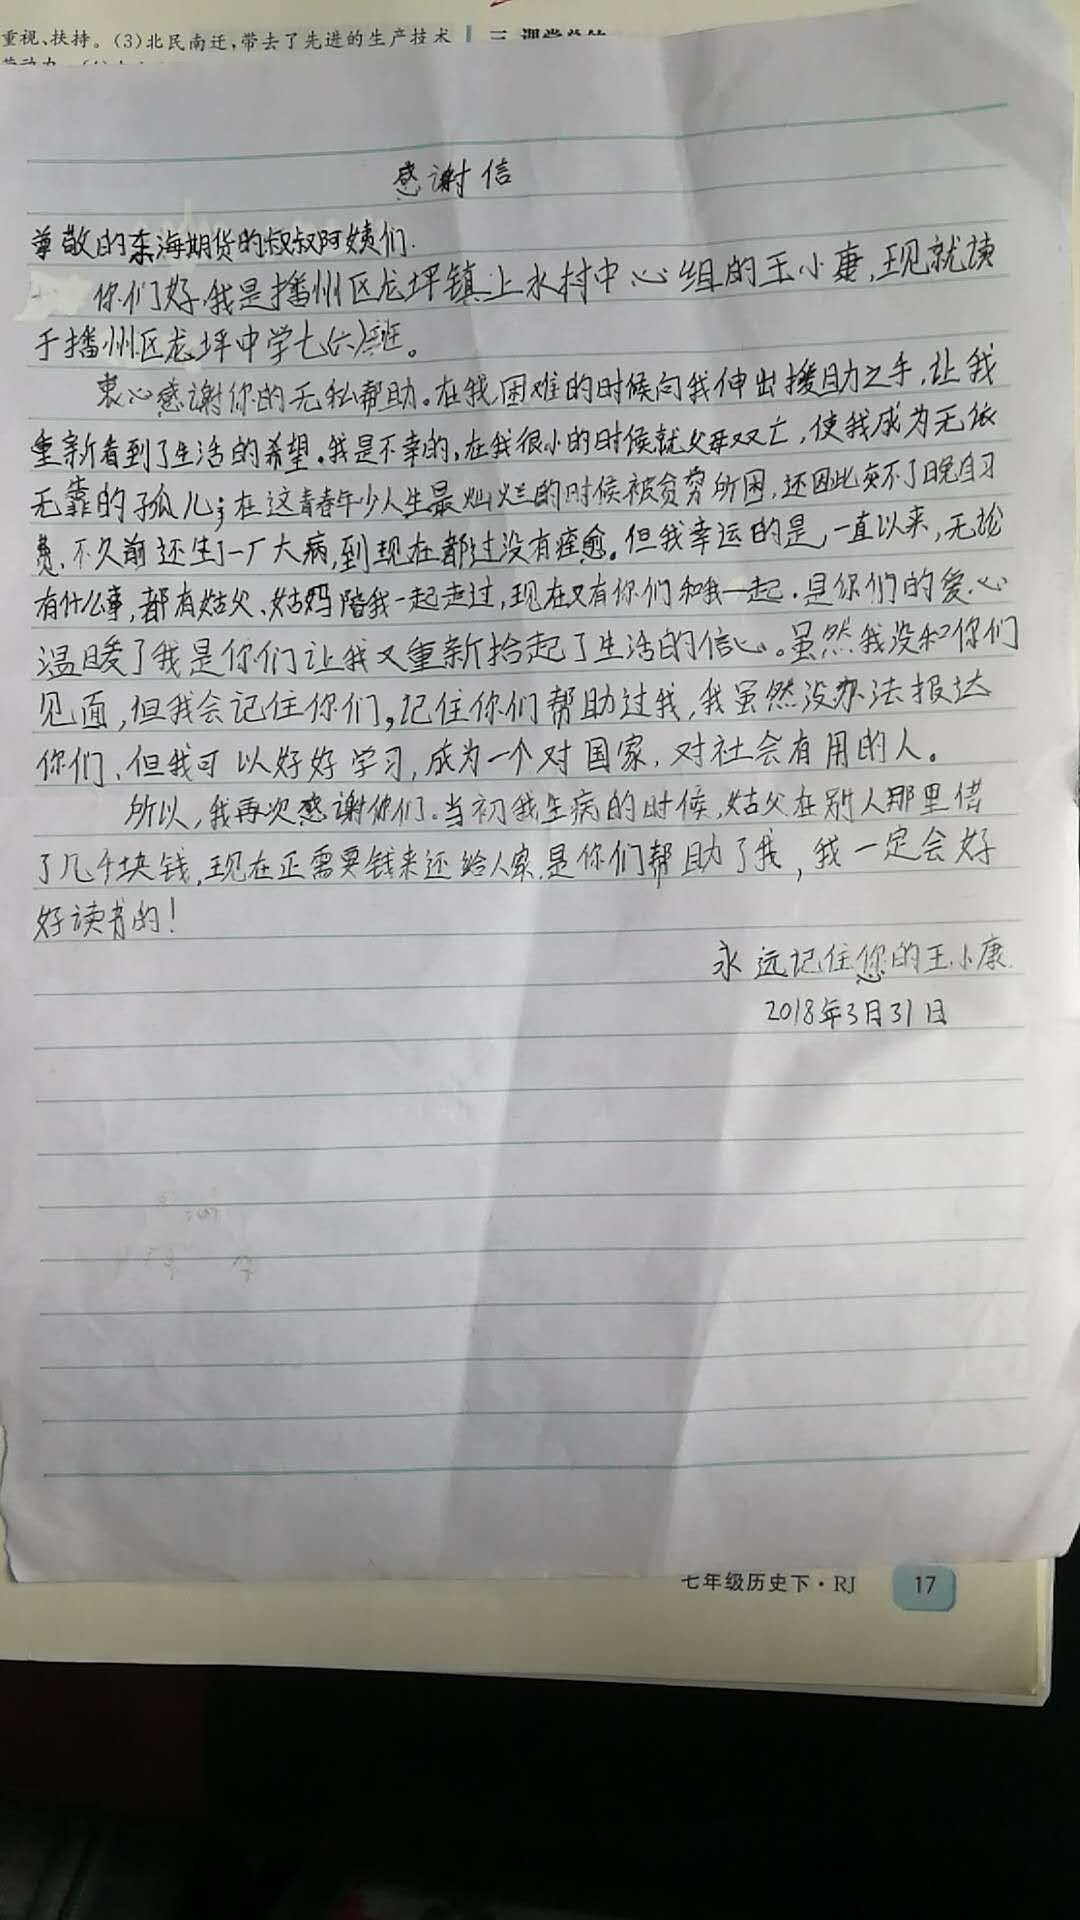 重视、扶持。(3)北民南迁,带去了先进的生产技术
感谢信
尊敬的东海期货的叔叔阿姨们.
你们好,我是播州区龙坪镇上水村中心组的王小康,现就读
于播州区龙坪中学七(六)班。
衷心感谢你的无私帮助。在我困难的时候向我伸出援助之手,让我
重新看到了生活的希望。我是不幸的,在我很小的时候就父母双亡,使我成为无依
无靠的孤儿;在这青春年少人生最灿烂的时候被贫穷所困,还因此交不了晚自习
费、不久前还生了一厂大病,到现在都过没有痊愈。但我幸运的是,一直以来,无论
有什么事,都有姑父、姑妈陪我一起走过,现在又有你们和我一起.是你们的爱心
温暖了我是你们让我又重新拾起了生活的信心。虽然我没和你们
见面,但我会记住你们,记住你们帮助过我,我虽然没办法报达
你们、但我可以好好学习,成为一个对国家,对社会有用的人。
所以,我再次感谢你们.当初我生病的时候,姑父在别人那里借
了几千块钱,现在正需要钱来还给人家.是你们帮助了我,我一定会好
好读书的!
永远记住您的王小康.
2018年3月31日
七年级历史下·RJ 17